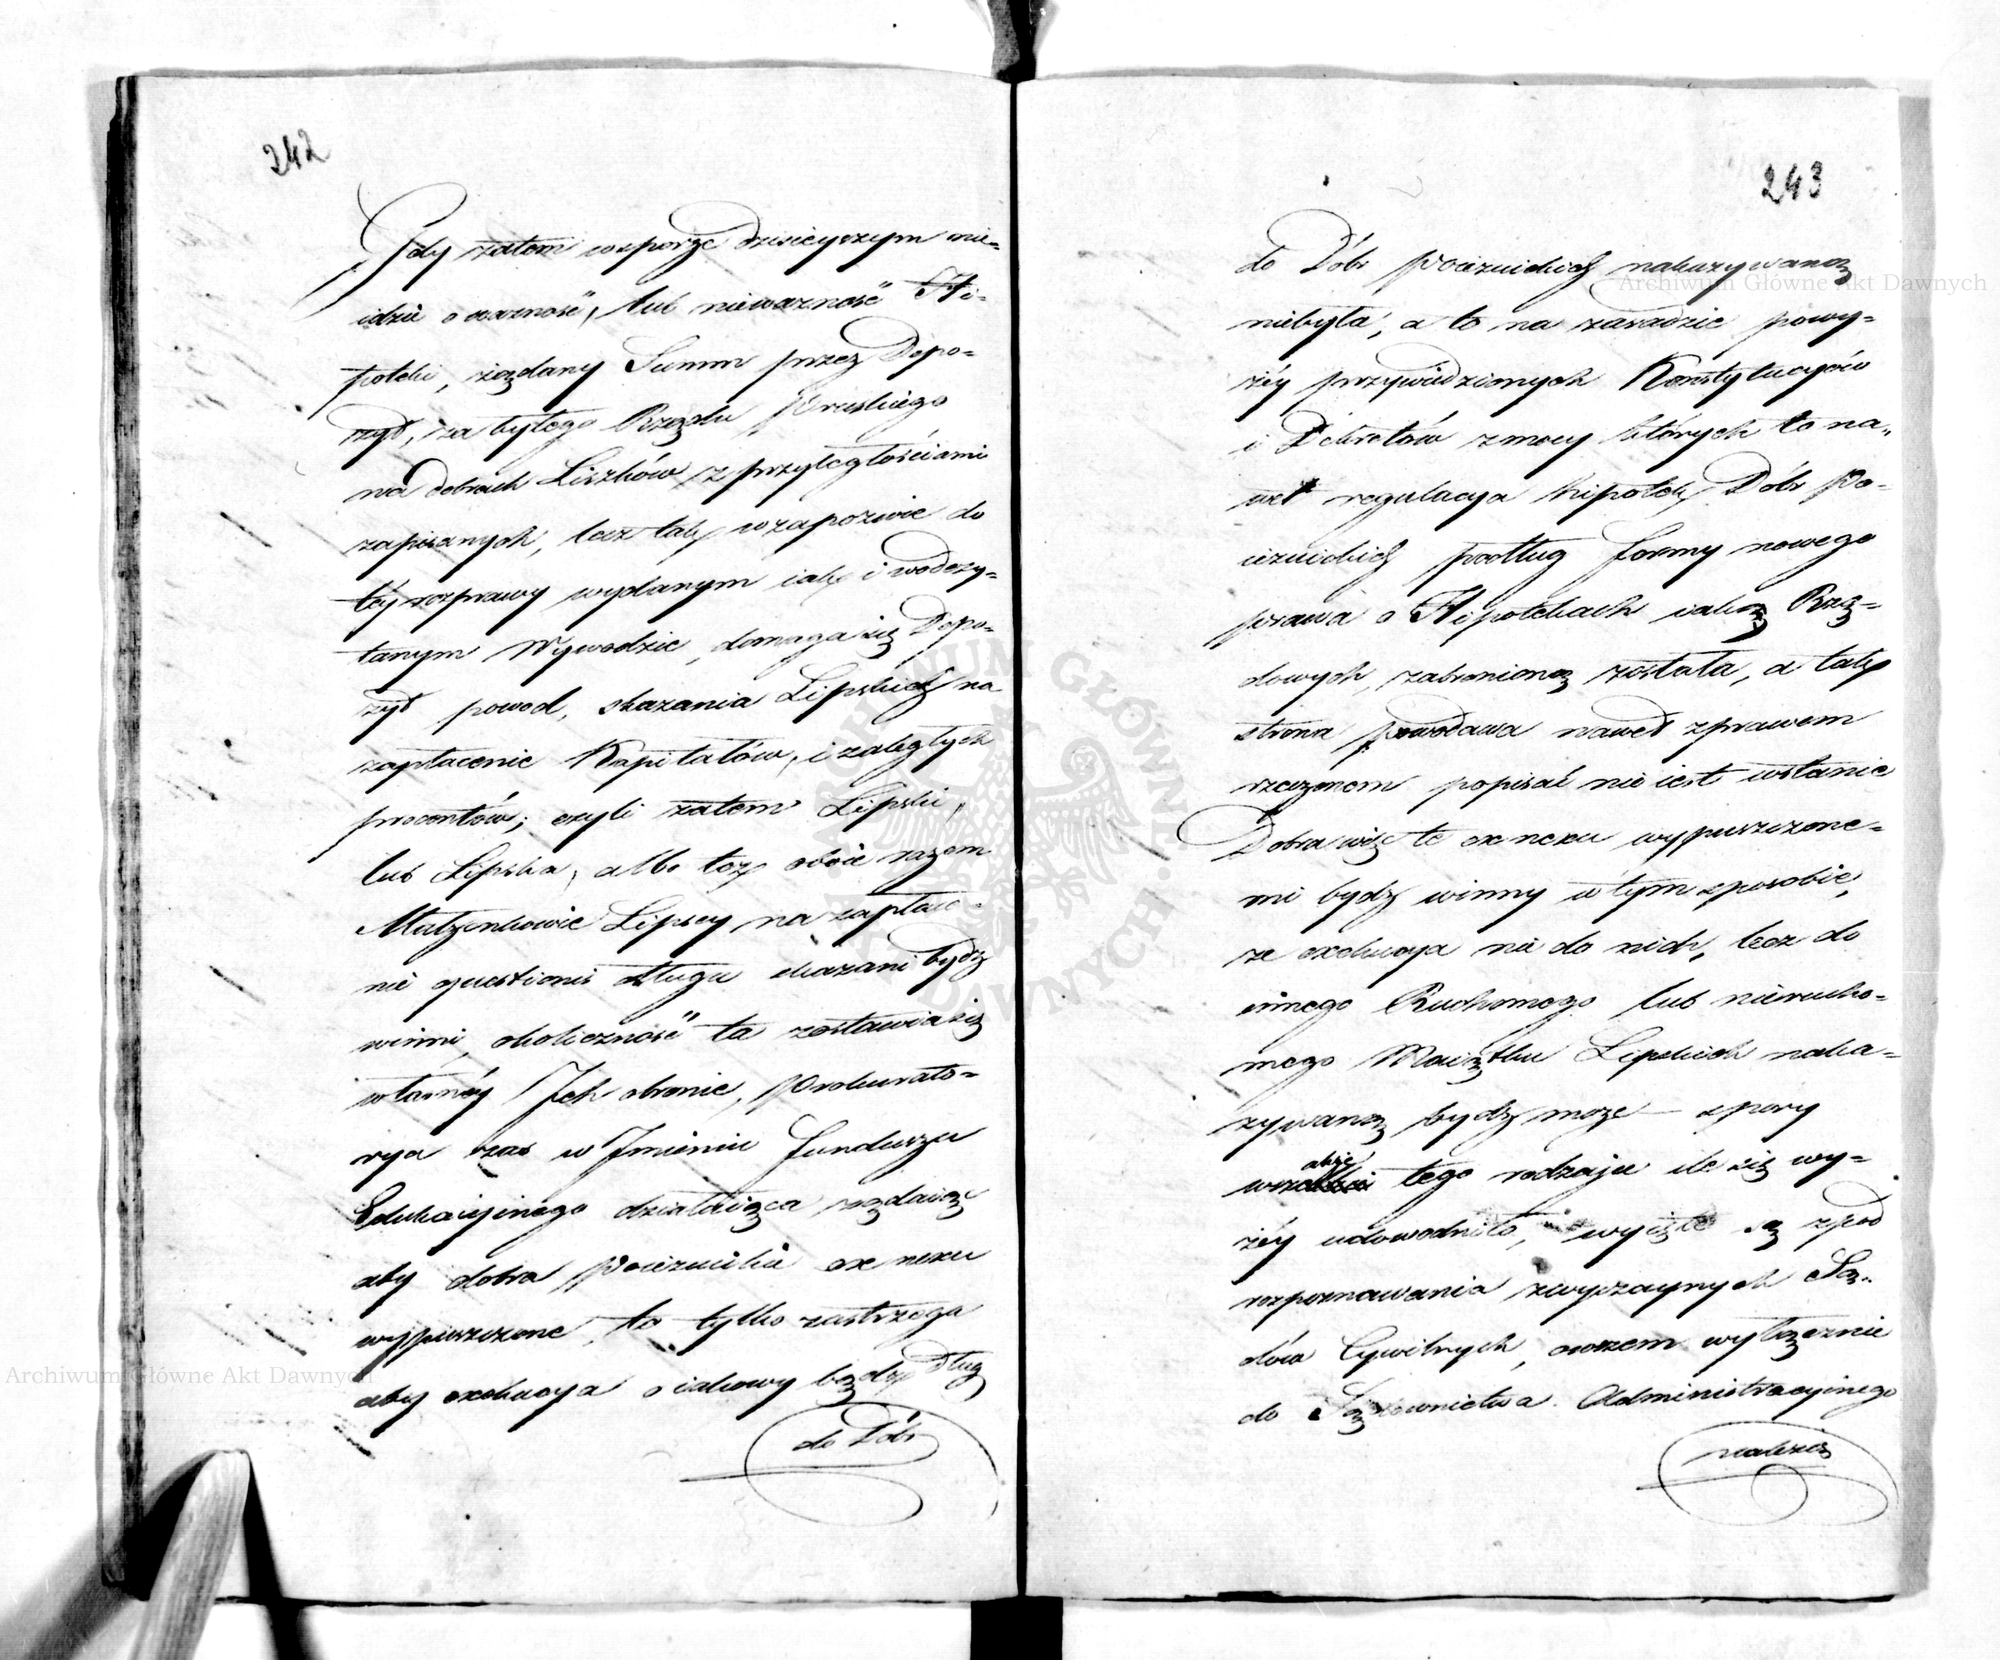 242
Gdy zatem w sporze dzisieyszym nie-
idzie o ważność, lub nieważność Hi-
poteki, żądany Summ przez Depo-
zyt, za byłego Rządu Pruskiego
na dobrach Liszków z przyległościami
zapisanych, lecz tak w zapozwie do
téy rozprawy wydanym iak i wodczy-
tanym Wywodzie, domaga się Depo-
zyt powod, skazania Lipskich na
zapłacenie Kapitałów, i zaległych
procentów; czyli zatem Lipski,
lub Lipska, albo też oboie razem
Małżonkowie Lipscy na zapłace-
nie questionis długu skazani bydź
winni, okoliczność ta zostawia się
własnéy Ich obronie, Prokurato-
rya zaś w Imieniu Funduszu
Edukacyinego działaiąca żądaiąc
aby dobra Poiezuickie ex nexu
wypuszczone, to tylko zastrzega
aby exekucya o iakowy bądź Dług
do Dóbr
243
do Dóbr Poiezuickich nakazywaną
niebyła, a to na zasadzie powy-
żéy przywiedzionych Konstytucyiów
i Dekretów z mocy których to na„
wet regulacya hipoteki Dóbr Po-
iezuickich podług formy nowego
prawa o Hipotekach iako Rzą-
dowych, zabronioną została, a tak
strona powodowa nawet z prawem
rzeczonem popisać nie iest wstanie
Dobra więc te ex nexu wypuszczone-
mi bydź winny w tym sposobie,
że exekucya nie do nich, lecz do
innego Ruchomego lub nierucho-
mego Maiątku Lipskich naka-
zywaną bydź może — spory
wszakże tego rodzaju ile się wy-
żéy udowodniło, wyięte są zpod
rozpoznawania zwyczaynych Są-
dów Cywilnych, owszem wyłącznie
do Sądownictwa Administracyinego
należą
Archiwum Główne Akt Dawnych
Archiwum Główne Akt Dawnych
ARCHIWUM GŁÓWNE AKT DAWNYCH